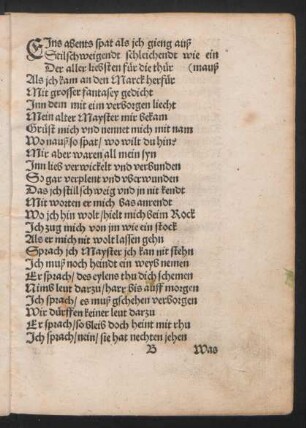 EIns abents spat als jch gieng auß
Stilschweigendt schleichendt wie ein
Der aller liebsten für die thür (mauß
Als jch kam an den Marck herfür
Mit grosser fantasey gedicht
Inn dem mit eim verborgen liecht
Mein alter Mayster mir bekam
Grüst mich vnd nennet mich mit nam
Wo nauß so spat/ wo wilt du hin?
Mir aber waren all mein syn
Inn lieb verwickelt vnd verbunden
So gar verplent vnd vberwunden
Das jch stillschweig vnd jn nit kendt
Mit worten er mich bas anrendt
Wo jch hin wolt/ hielt mich beim Rock
Ich zug mich von jm wie ein stock
Als er mich nit wolt lassen gehn
Sprach jch Mayster jch kan nit stehn
Ich muß noch heindt ein weyb nemen
Er sprach/ des eylens thu dich schemen
Nims leut darzu/ harr bis auff morgen
Ich sprach/ es muß gschehen verborgen
Wir dürffen keiner leut darzu
Er sprach/ so bleib doch heint mit rhu
Ich sprach/ nein/ sie hat nechten jehen
B Was